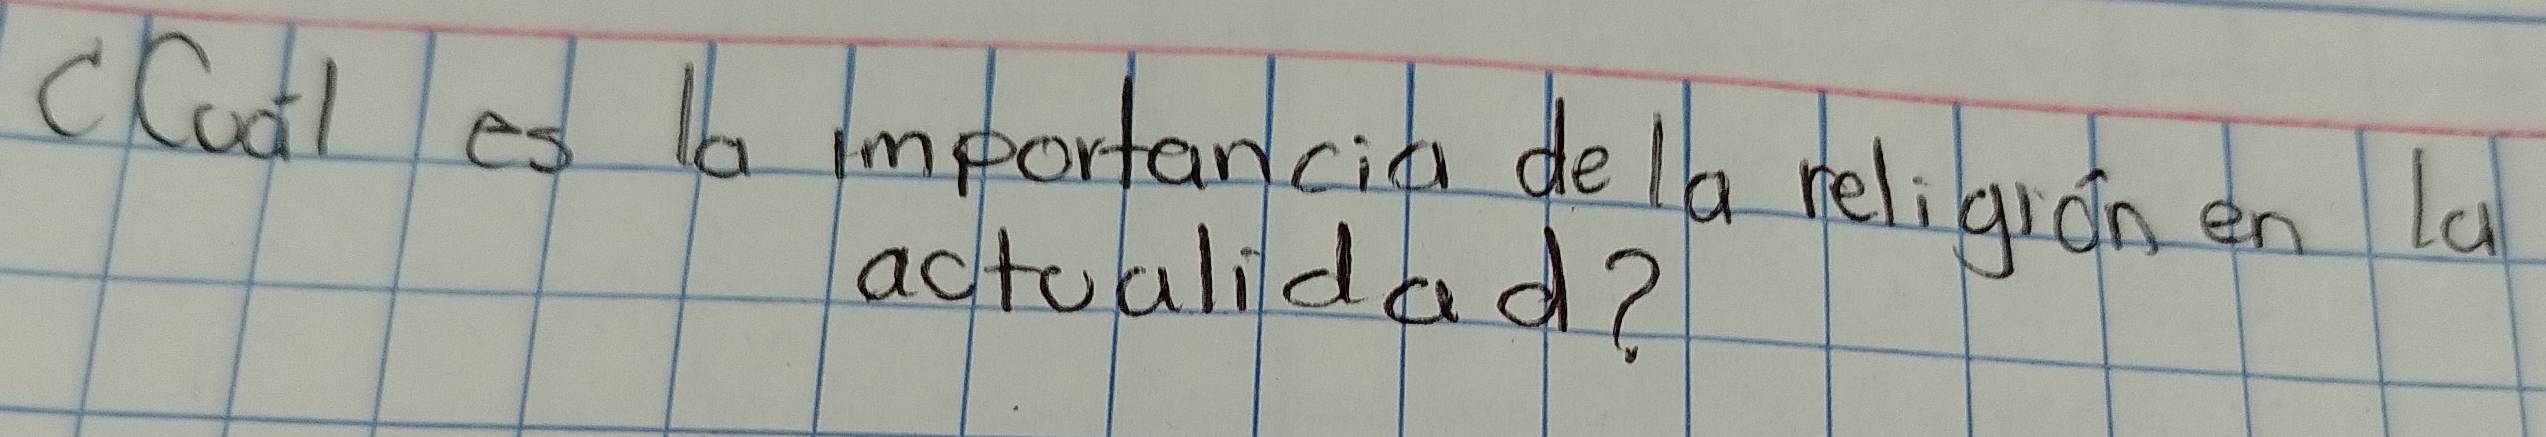 ¿Cuál es la importancia de la religión en la
actualidad?